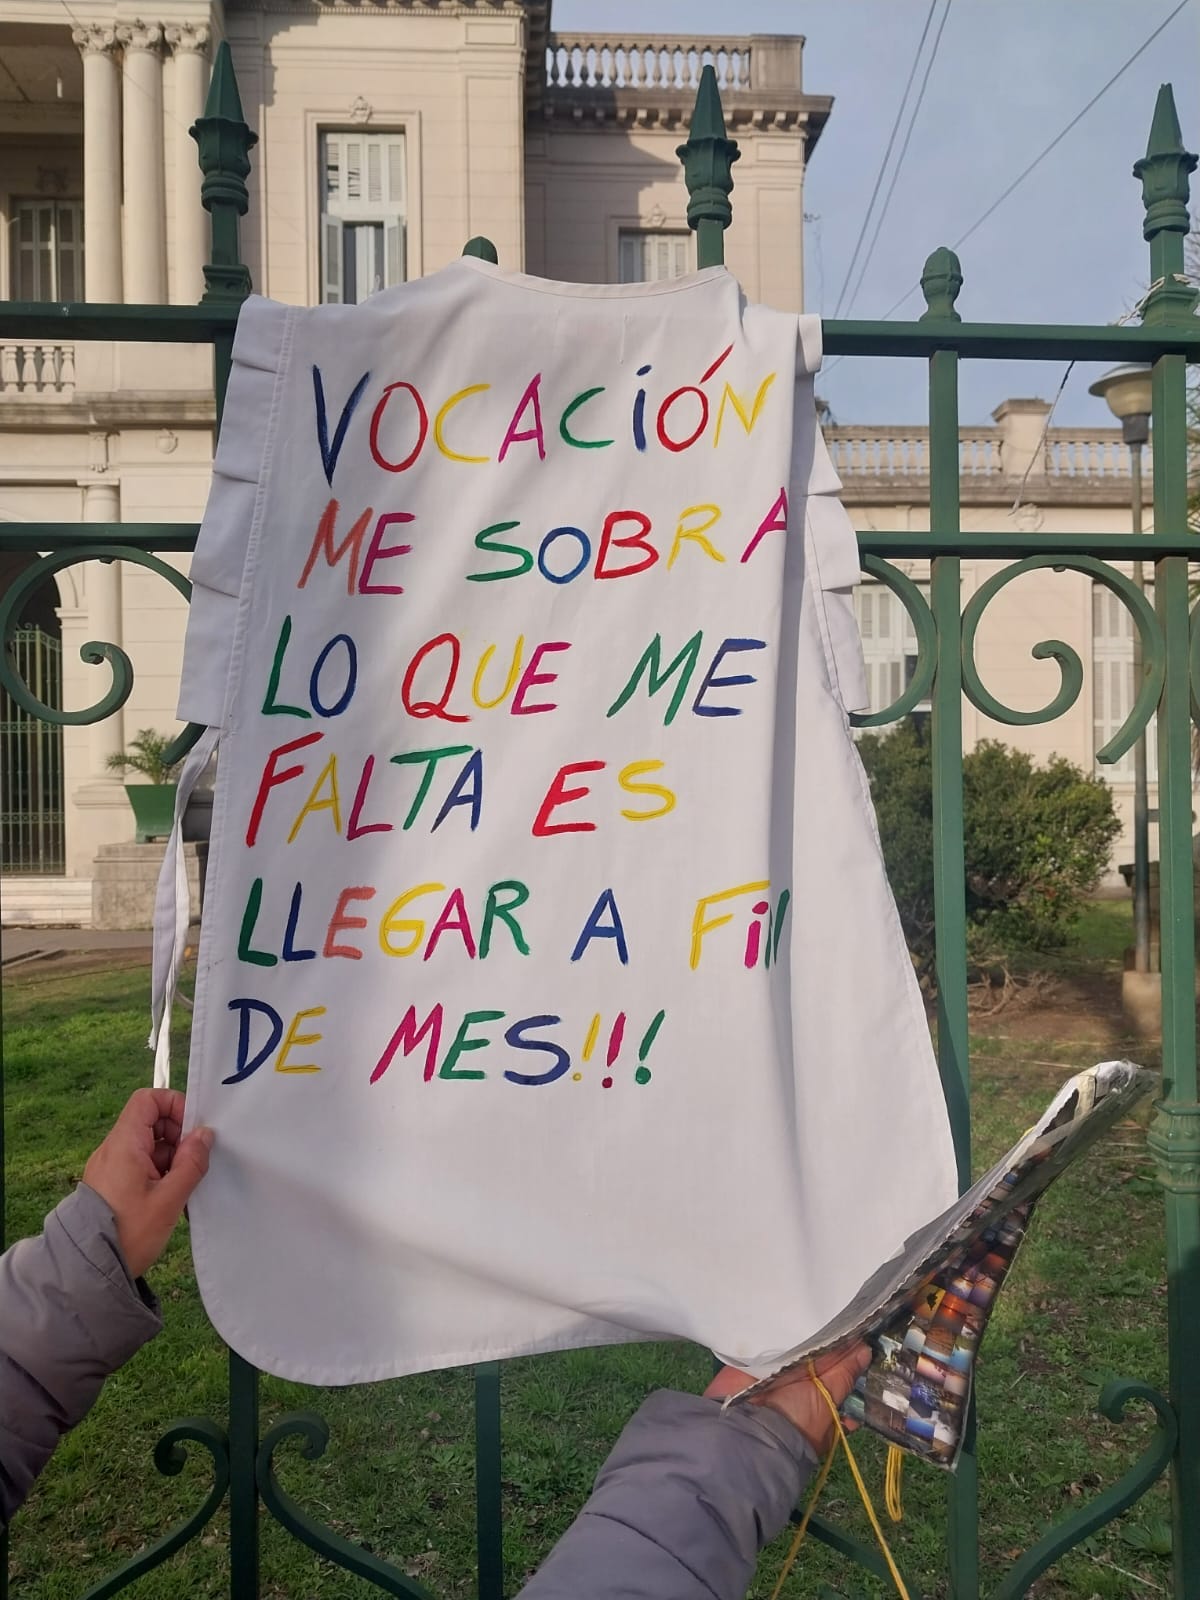 VOCACIÓN
ME SOBRA
LO QUE ME
FALTA ES
LLEGAR A FIN
DE MES!!!